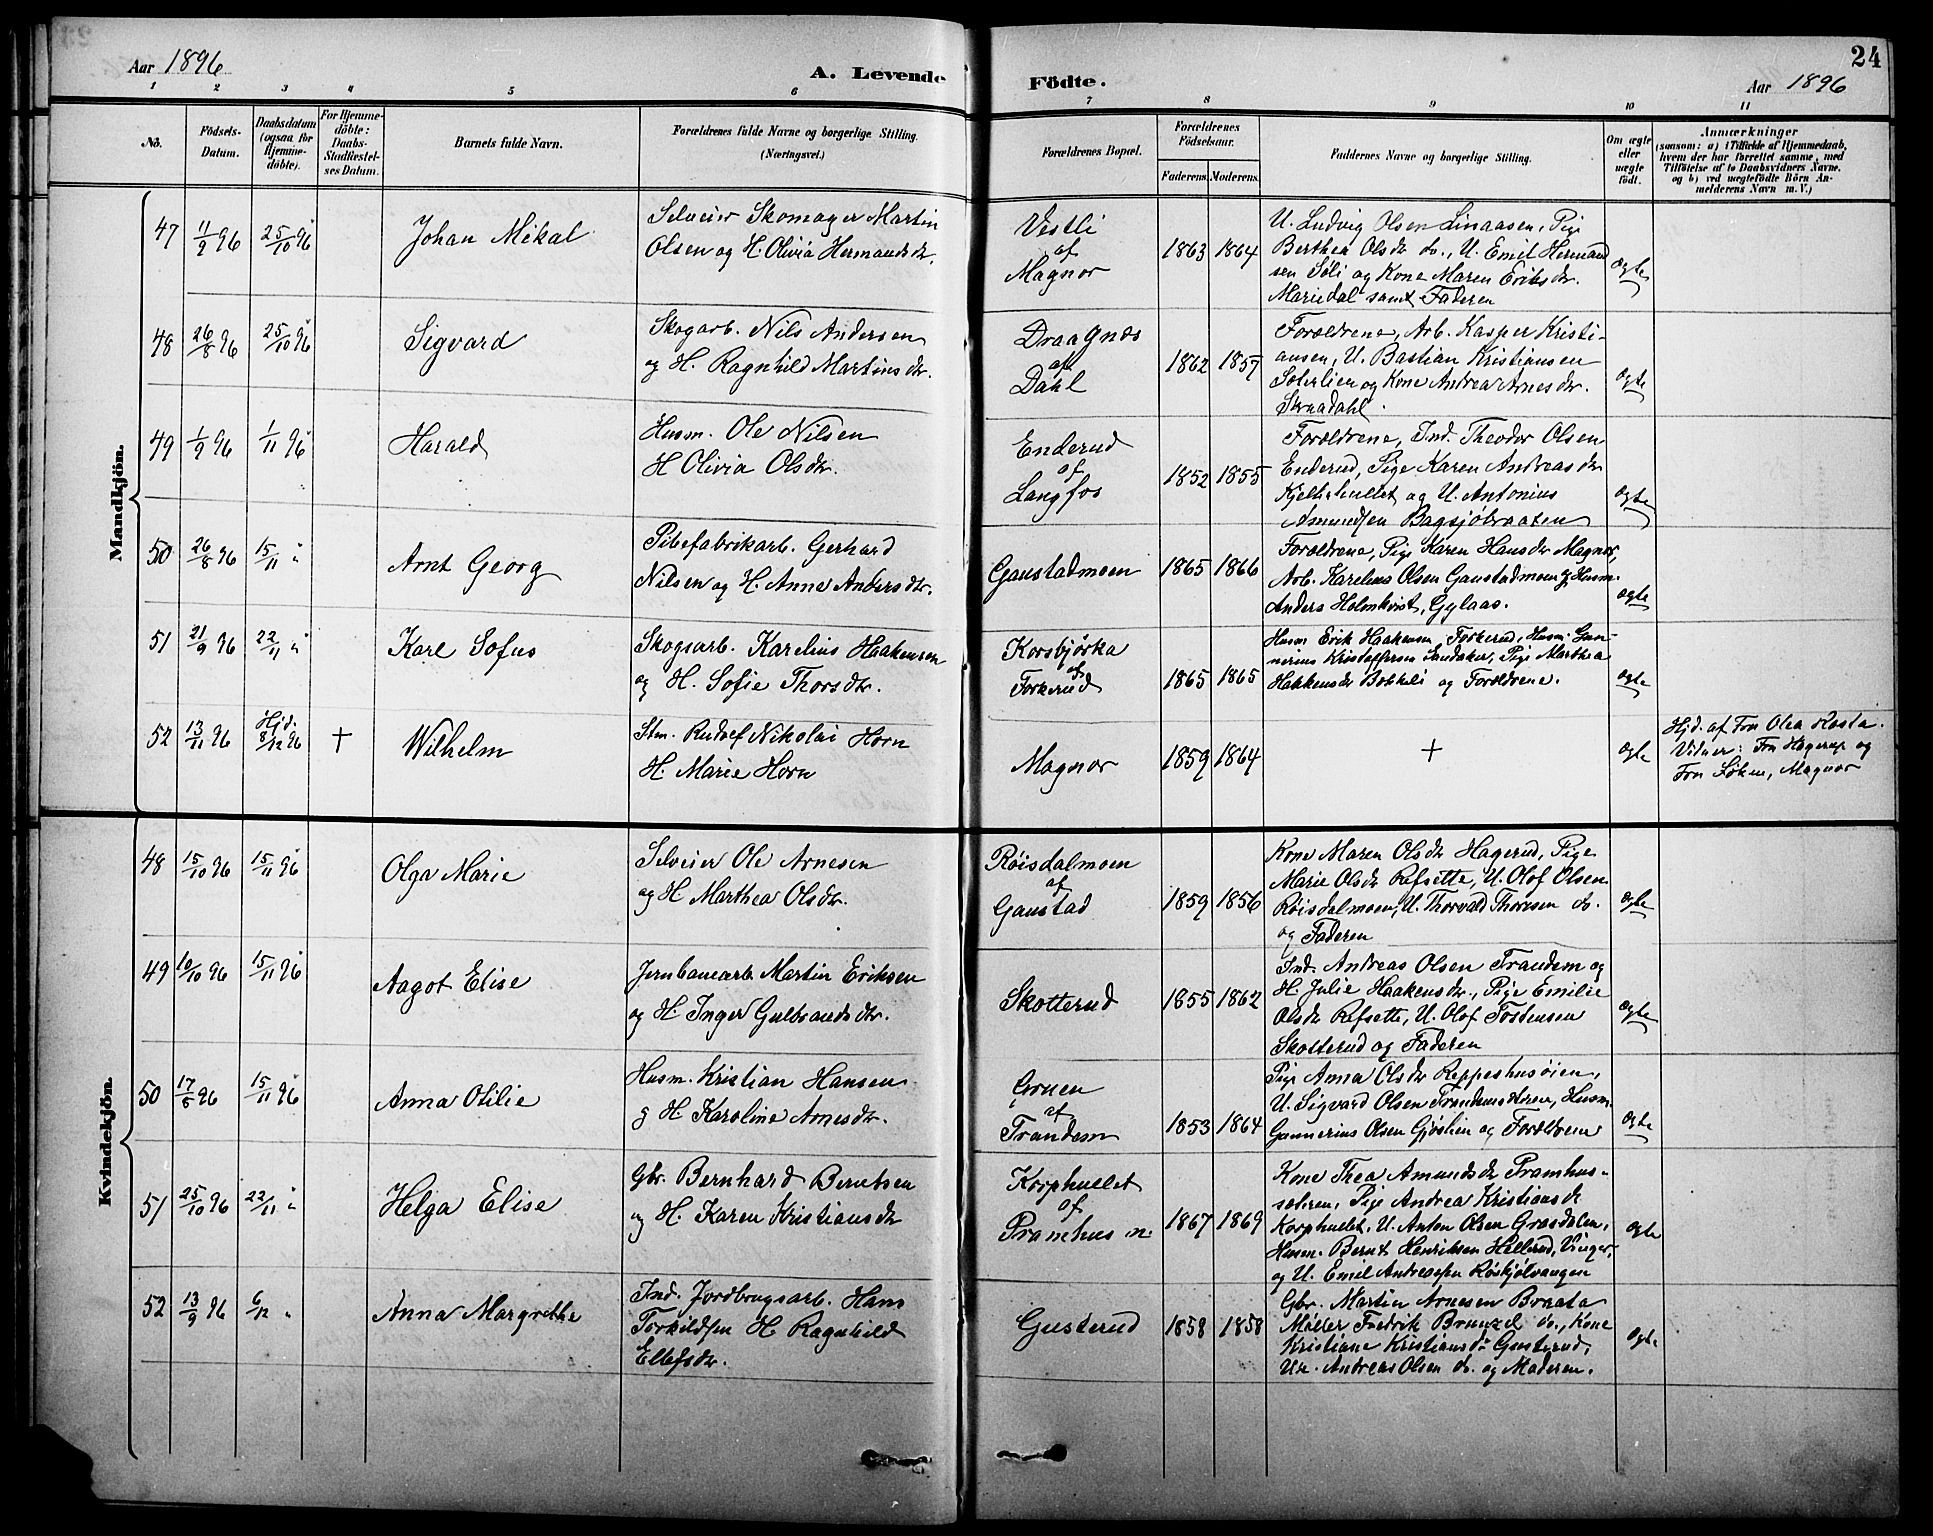 24
Aar 1896
A. Levende Födte.
Aar 1896
1 2 3 4 5 6 7 8 9 10 11
No.
Födsels-
Datum.
Daabsdatum
(ogsaa for
Hjemme-
döbte).
For Hjemme-
döbte:
Daabs-
Stadfæstel-
ses Datum.
Barnets fulde Navn.
Forældrenes fulde Navne og borgerlige Stilling.
(Næringsvei.)
Forældrenes Bopæl.
Forældrenes
Födselsaar.
Faderens. Moderens.
Faddernes Navne og borgerlige Stilling.
Om ægte
eller
uægte
födt.
Anmærkninger
(saasom: a) i Tilfælde af Hjemmedaab,
hvem der har forrettet samme, med
Tilföielse af to Daabsvidners Navne,
og b) ved uægtefödte Börn An-
melderens Navn m. V.)
Mandkjön.
47 11/9 96 25/10 96 Johan Mikal
Selveier Skomager Martin
Olsen og H. Olivia Hermandsdr.
Vestli
af
Magnor
1863 1864
U. Ludvig Olsen Linaasen, Pige
Berthea Olsdr do., U. Emil Hermand
sen Søli og Kone Maren Eriksdr.
Mariedal samt Faderen
ægte
48 26/8 96 25/10 96 Sigvard
Skogarb. Nils Andersen
og H. Ragnhild Martinsdr.
Draagnæs
af
Dahl
1862 1857
Forældrene, Arb. Kasper Kristi-
ansen, U. Bastian Kristiansen
og Kone Andrea Arnesdr.
Skraadahl.
ægte
49 1/9 96 1/11 96 Harald
Husm. Ole Nilsen
H Olivia Olsdr.
Enderud
af
Langfos
1852 1855
Forældrene, Ind. Theodor Olsen
Enderud, Pige Karen Andreasdr
og U. Antonius
Amundsen Bagsjøbraaten
ægte
50 26/8 96 15/11 " Arnt Georg
Pibefabrikarb. Gerhard
Nilsen og H. Anne Andersdr.
Gaustadmoen
1865 1866
Forældrene, Pige Karen Hansdr Magnor,
Arb. Karelius Olsen Gaustadmoen og Husm.
Anders Holmkvist, Gylaas.
ægte
51 21/9 96 22/11 " Karl Sofus
Skogsarb. Karelius Haakensen
og H. Sofie Thorsdr.
Korsbjørka
af
Forkerud
1865 1865
Husm Erik Haakensen Forkerud, Husm. Gun-
nerius Kristoffersen Sandaker, Pige Marthea
Hakkensdr Bakkeli og Forældrene.
ægte
52 13/11 96 Hjd. 8/12 96 + Wilhelm
Stm. Rudolf Nikolai Horn
H. Marie Horn
Magnor
1859 1864
+
ægte
Hjd. af Fru Olea Rasta.
Vidner: Fru Hagerup og
Fru Løken, Magnor
Kvindekjön.
48 15/10 96 15/11 96 Olga Marie
Selveier Ole Arnesen
og H. Marthea Olsdr.
Røisdalmoen
af
Gaustad
1859 1856
Kone Maren Olsdr Hagerud, Pige
Marie Olsdr Refsette, U. Olof Olsen
Røisdalmoen, U. Thorvald Thoresen do.
og Faderen
ægte
49 10/10 96 15/11 96 Aagot Elise
Jernbanearb Martin Eriksen
og H. Inger Gulbrandsdr.
Skotterud
1855 1862
Ind. Andreas Olsen Trandem og
H. Julie Haakensdr., Pige Emilie
Olsdr Refsette, U. Olof Tostensen
Skotterud og Faderen
ægte
50 17/8 96 15/11 96 Anna Otilie
Husm. Kristian Hansen
og H Karoline Arnesdr.
Gruen
af
Trandem
1853 1864
Pige Anna Olsdr Reppeshusøien,
U. Sigvard Olsen Trandemsæteren, Husm.
Gunnerius Olsen Gjøslien og Forældrene
ægte
51 25/10 96 22/11 " Helga Elise
Gbr. Bernhard Berntsen
og H. Karen Kristiansdr
Korphullet
af
Pramhus n.
1867 1869
Kone Thea Amundsdr Pramhus-
sæteren, Pige Andrea Kristiansdr
Korphullet, U. Anton Olsen Grasdalen,
Husm. Bernt Henriksen Hellerud, Vinger,
og U. Emil Andreassen
ægte
52 13/9 96 6/12 " Anna Margrethe
Ind. Jordbrugsarb. Hans
Torkildsen H Ragnhild
Ellefsdr.
Gusterud
1858 1858
Gbr. Martin Arnesen Braata
Møller Fredrik do., Kone
Kristiane Kristiansdr Gusterud,
Andreas Olsen do. og Moderen.
ægte